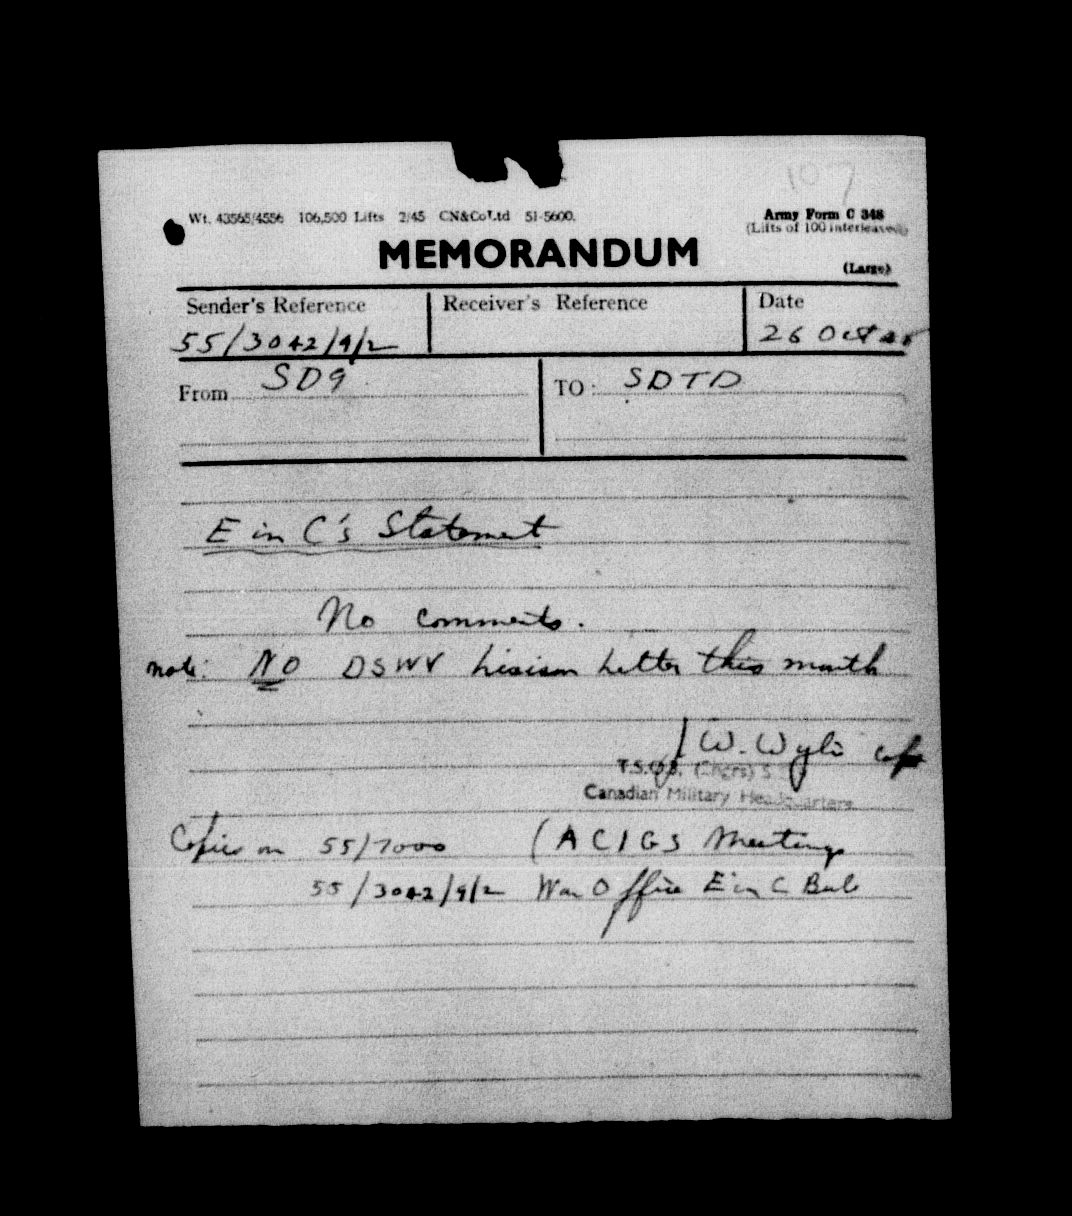 107
Wt. 43565/4556 106,500 Lifts 2/45 CN&Co Ltd 51-5600.
Army Form C 348
(Lifts of 100 interleaved)
MEMORANDUM
(Large)
Sender's Reference
Receiver's Reference
Date
55/3042/9/2
26 Oct 45
From SD9
TO: SDTD
E in C's Statement
No comments.
Note: NO DSWV Liaison Letter this month
W. Wylie
T.S.O.3. (Engrs)
Canadian Military Headquarters
Copies on 55/7000 (ACIGS Meetings
55/3042/9/2 War Office E in C Bulb